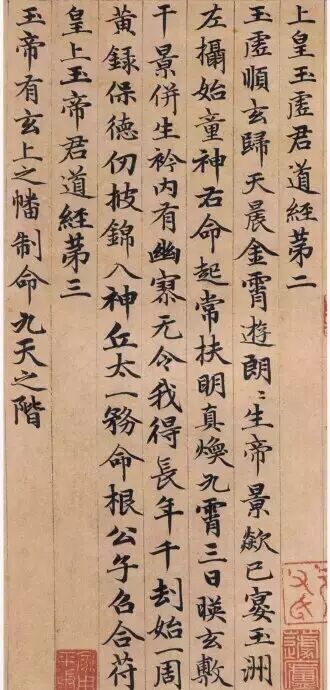 上皇玉虛君道經第二
玉虛順玄歸天晨金霄遊朗〻生帝景歘已宴玉洲
左攝始童神右命起常扶明真煥九霄三日暎玄敷
千景併生衿內有幽寥无令我得長年千刦始一周
黃錄保德仞披錦入神丘太一務命根公子召合符
皇上玉帝君道經第三
玉帝有玄上之幡制命九天之階